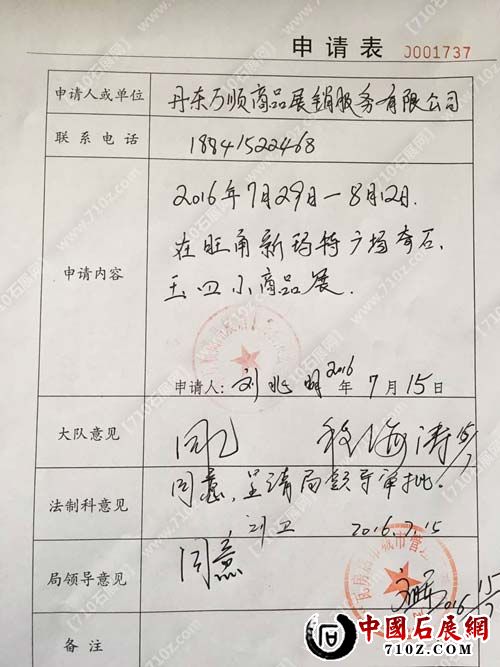 申请表 J001737
申请人或单位 丹东万顺商品展销服务有限公司
联系电话 18841522468
申请内容 2016年7月29日一8月12日.
在旺角新玛特广场奇石、
玉四小商品展.
申请人: 刘兆明 2016年7月15日
大队意见 同意 程海涛 15/7
法制科意见 同意,呈请局领导审批.
刘卫 2016.7.15
局领导意见 同意
2016 15/7
备注
中國石展網
710Z.COM